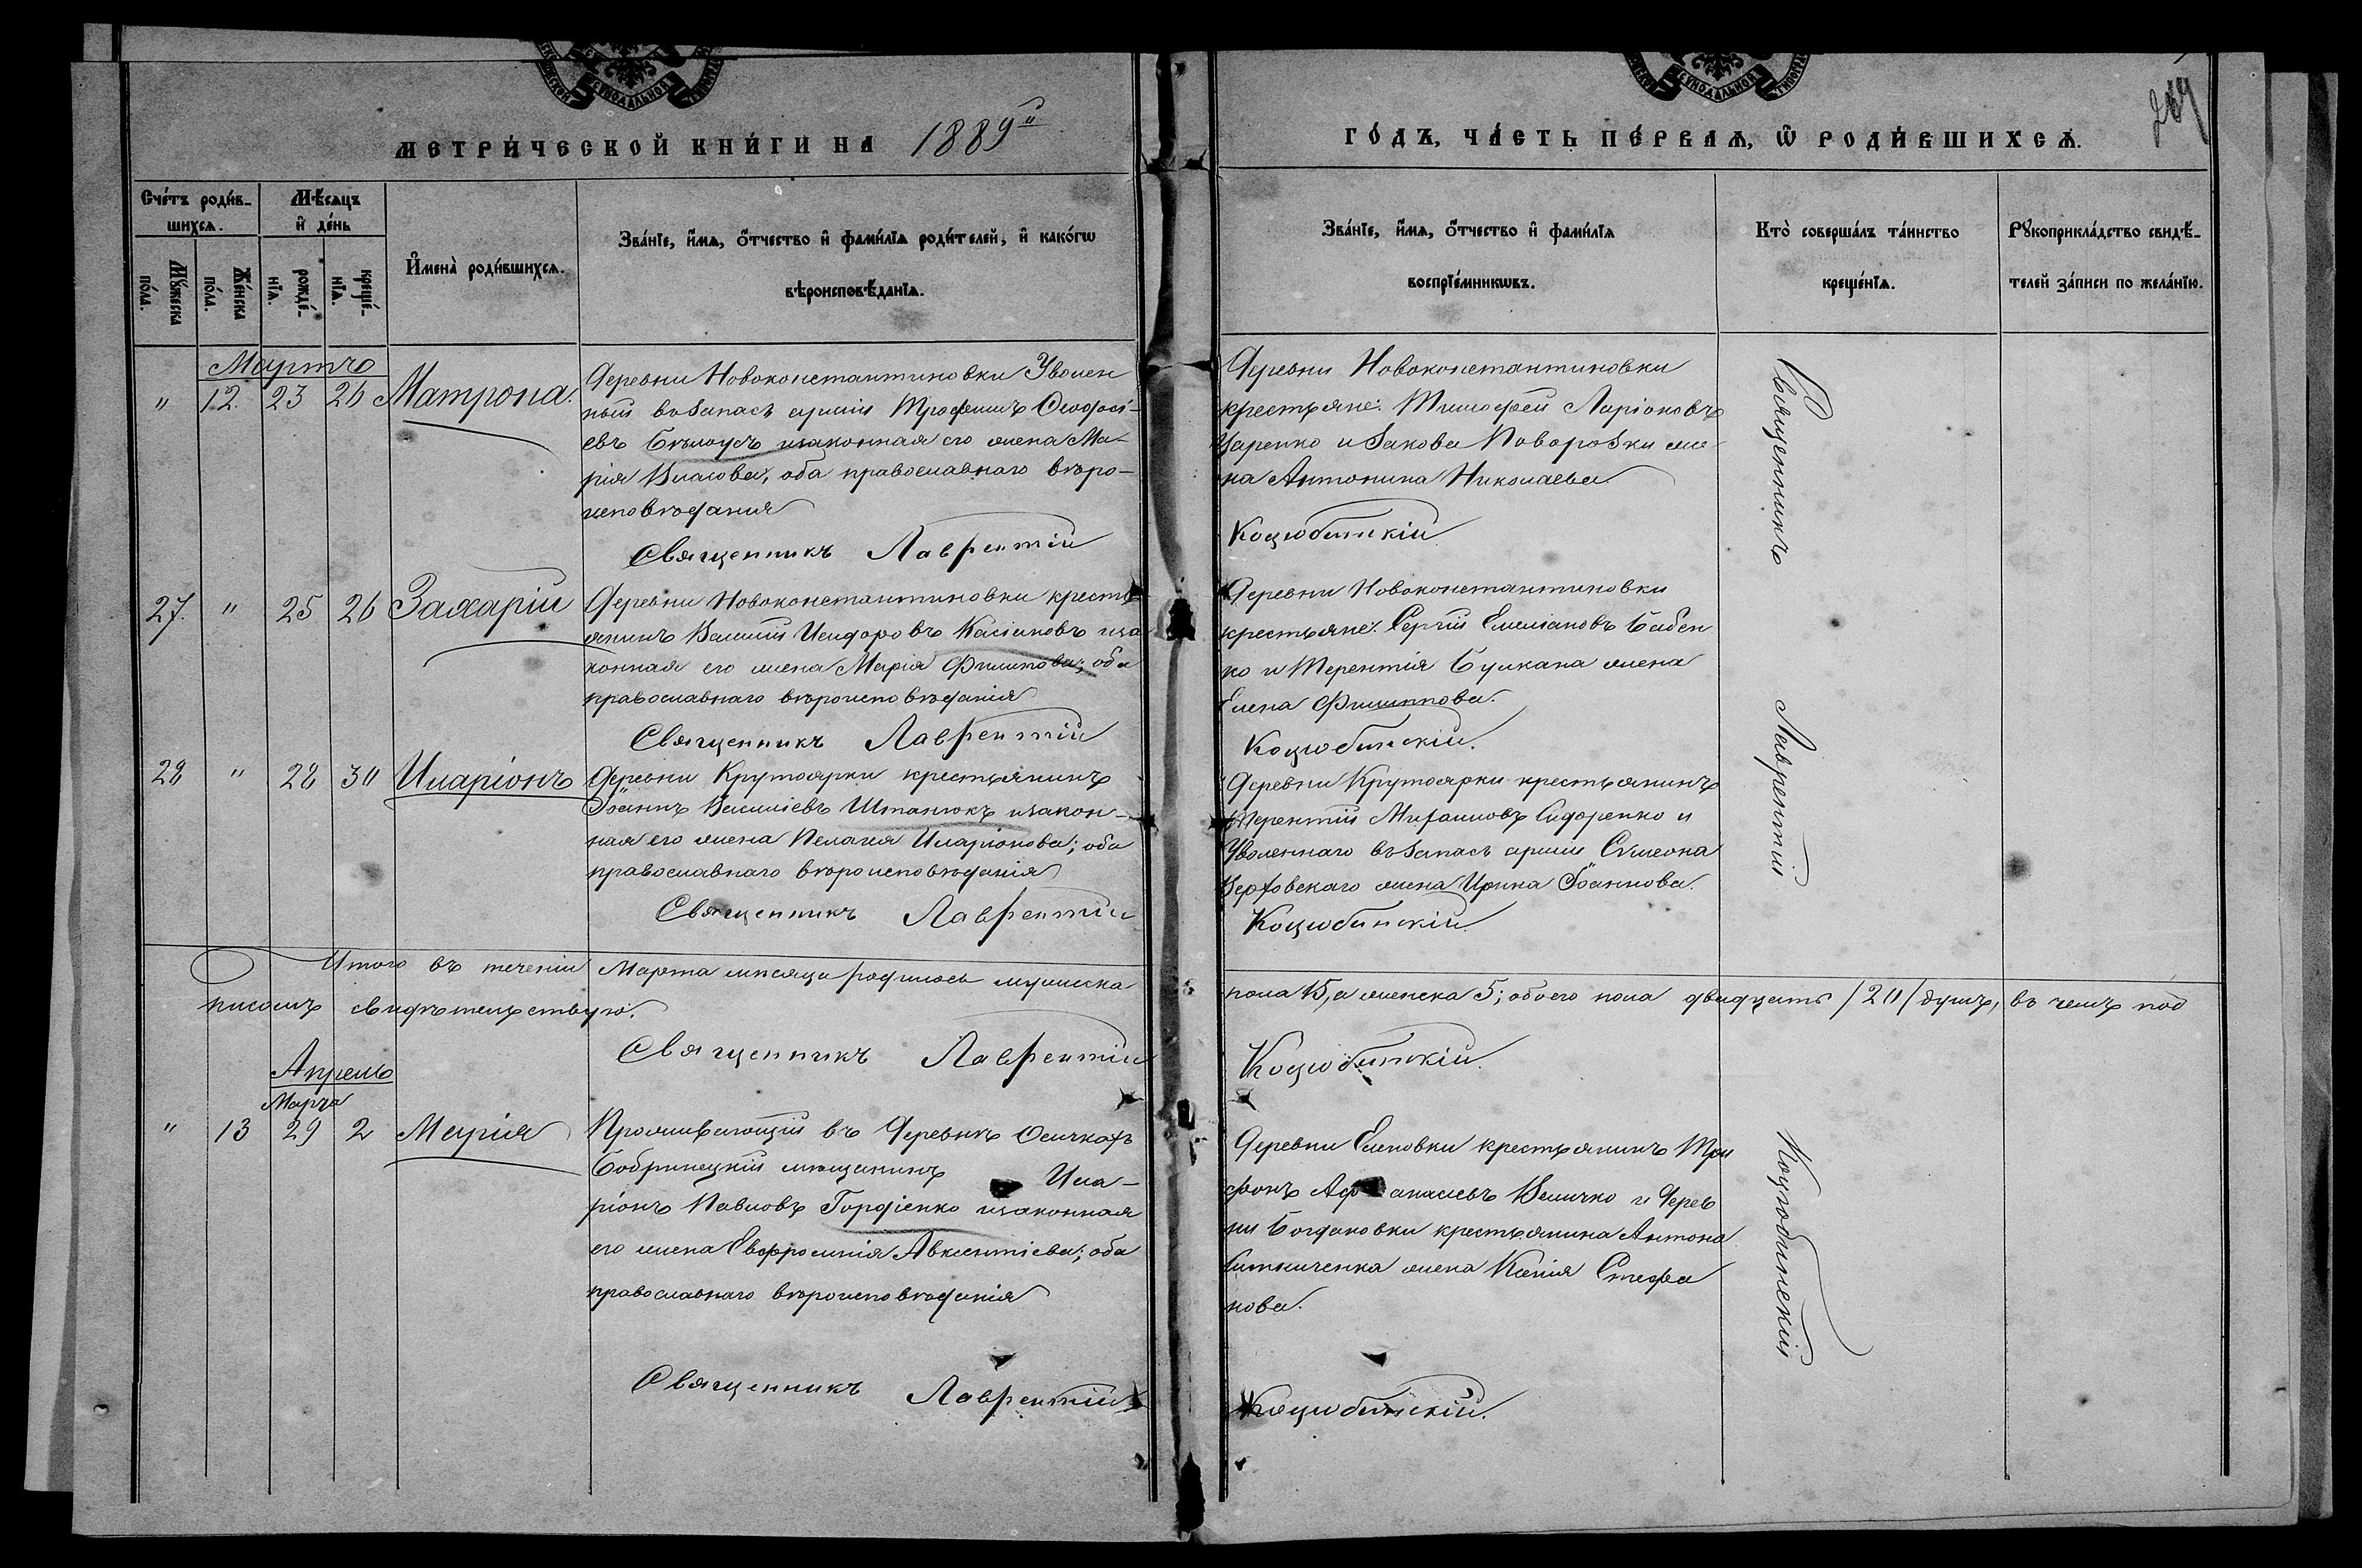 МЕТРИ́ЧЕСКОЙ КНИ́ГИ НА 1889й
ГО́ДЪ, ЧА́СТЬ ПЕ́РВАѦ, Ѡ҆ РОДИ́ВШИХСѦ.
Сче́тъ роди́в-
шихсѧ.
Мѣ́сѧцъ
и҆ де́нь
Мꙋ́жеска
по́ла.
Же́нска
по́ла.
рожде́-
нїѧ.
креще́-
нїѧ.
И҆мена̀ роди́вшихсѧ.
Зва́нїе, и҆́мѧ, ѻ҆́тчество и҆ фами́лїѧ роди́телей, и҆ како́гѡ
вѣроисповѣ́данїѧ.
Зва́нїе, и҆́мѧ, ѻ҆́тчество и҆ фами́лїѧ
воспрїе́мникѡвъ.
Кто̀ соверша́лъ та́инство
креще́нїѧ.
Рꙋкоприкла́дство свидѣ́-
телей за́писи по жела́нїю.
Мартъ
" 12. 23 26 Матрона.
Деревни Новоконстантиновки Уволен
ный въ запасъ арміи Трофимъ Ѳеодосі-
евъ Бѣлоусъ изаконная его жена Ма-
рія Власова, оба православнаго вѣро-
исповѣданія
Священникъ Лаврентій
Деревни Новоконстантиновки
крестьяне: Тимофей Ларіоновъ
Царенко и Іакова Поворозки же
на Антонина Николаева
Коцюбинскій
27. " 25 26 Захарій
Деревни Новоконстантиновки кресть
янинъ Василій Исидоровъ Касіяновъ иза
конная его жена Марія Филипова; оба
православнаго вѣроисповѣданія
Священникъ Лаврентій
Деревни Новоконстантиновки
крестьяне: Сергій Емеліановъ Бабен
ко и Терентія Булкана жена
Елена Филиппова.
Коцюбинскій.
28 " 28 30 Иларіонъ
Деревни Крутоярки крестьянинъ
Іоаннъ Василіевъ Штанюкъ изакон-
ная его жена Пелагія Иларіонова; оба
православнаго вѣроисповѣданія
Священникъ Лаврентій
Деревни Крутоярки крестьянинъ
Терентій Михаиловъ Сидоренко и
Уволеннаго въ запасъ арміи Сѵмеона
Верховскаго жена Ирина Іоаннова.
Коцюбинскій.
Итого въ теченіи Марта мѣсяца родилось мужеска пола 15, а женска 5; обоего пола двадцать /20/ душъ, въ чемъ под
писомъ свидѣтельствую.
Священникъ Лаврентій Коцюбинскій.
Апрель
Марта
" 13 29 2 Марія
Проживающій въ Деревнѣ Осичкахъ
Бобринецкій мѣщанинъ Ила-
ріонъ Павловъ Гордіенко изаконная
его жена Евфросинія Авксентіева; оба
православнаго вѣроисповѣданія
Священникъ Лаврентій
Деревни Еленовки крестьянинъ Три
фонъ Афанасіевъ Величко и Дерев
ни Богдановки крестьянина Антона
жена Ксенія Стефа
нова.
Коцюбинскій.
Священникъ Лаврентій Коцюбинскій